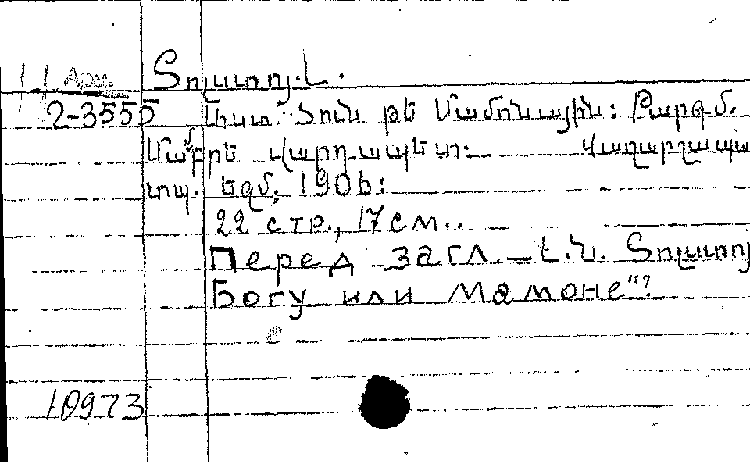 11 Арм. Տոլստոյ. Լ.
2-3555 Աստ՝ծուն թէ Մամոնային: Թարգմ.
Մամբրէ վարդապետ: Վաղարշապա
տպ. Եջմ. 1906:
22 стр., 17 см..
Перед загл. — Լ. Ն. Տոլստոյ
Богу или мамоне"?
10973